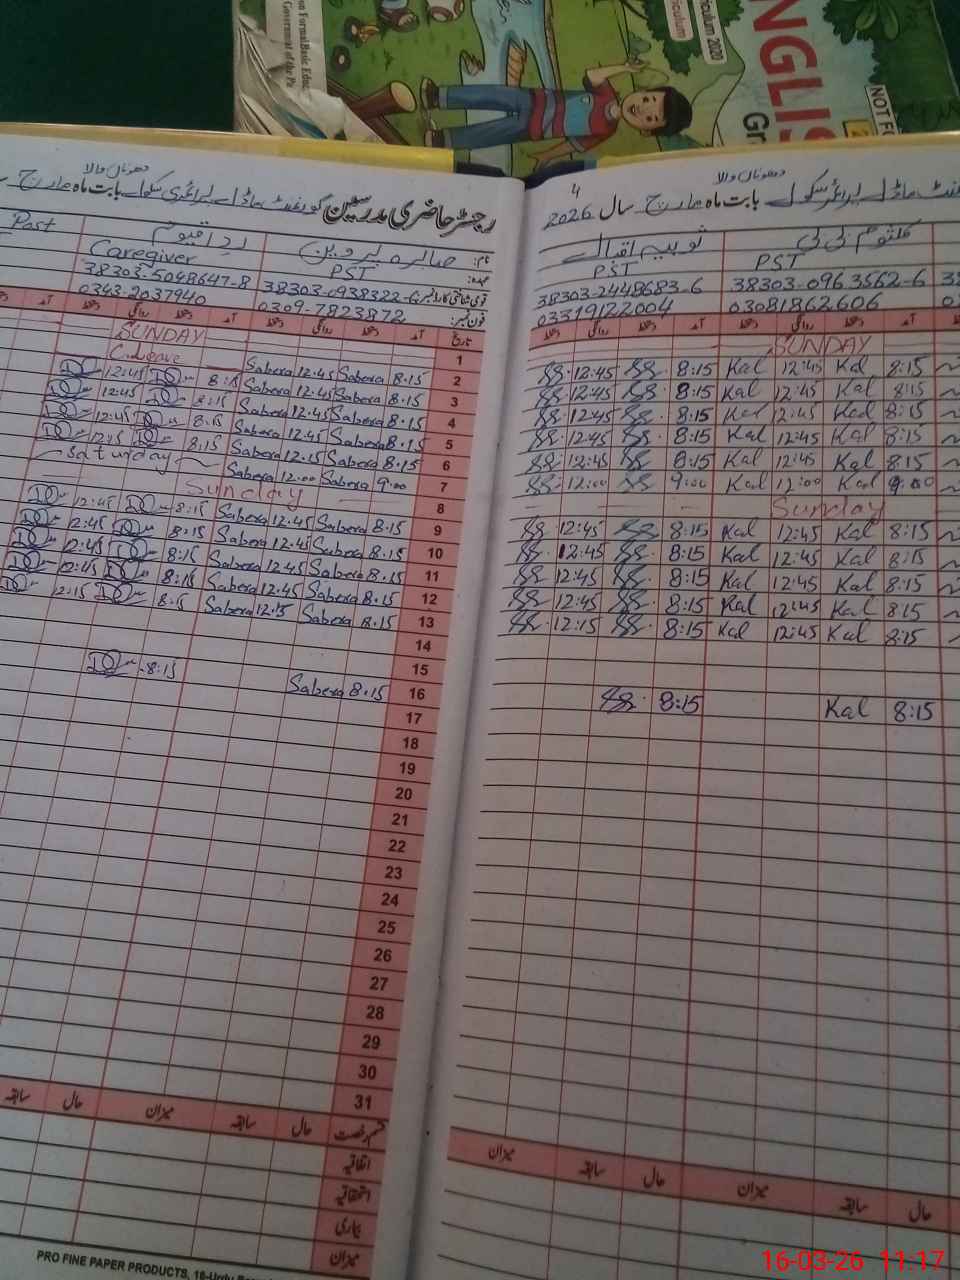 Curriculum 2020
NOT F
ENGLIS
Gr
on Formal Basic Educ
Government of the Pa
دھوناں والا
رجسٹر حاضری مدرسین گورنمنٹ ماڈل پرائمری سکول بابت ماہ مارچ
نام: صابرہ پروین
عہدہ: PST Caregiver Post
قومی شناختی کارڈ نمبر: 38303-0938322-6 38303-5048647-8
فون نمبر: 0309-7823872 0343-2037940
تاریخ آمد دستخط روانگی دستخط آمد دستخط روانگی دستخط آمد
1 SUNDAY
2 8:15 Sabera 12:45 Sabera C.Leave
3 8:15 Sabera 12:45 Sabera 8:15 12:45
4 8:15 Sabera 12:45 Sabera 8:15 12:45
5 8:15 Sabera 12:45 Sabera 8:15 12:45
6 8:15 Sabera 12:15 Sabera 8:15 12:15
7 9:00 Sabera 12:00 Sabera Saturday
8 Sunday
9 8:15 Sabera 12:45 Sabera 8:15 12:45
10 8:15 Sabera 12:45 Sabera 8:15 12:45
11 8:15 Sabera 12:45 Sabera 8:15 12:45
12 8:15 Sabera 12:45 Sabera 8:15 12:45
13 8:15 Sabera 12:15 Sabera 8:15 12:15
14
15
16 8:15 Sabera 8:15
17
18
19
20
21
22
23
24
25
26
27
28
29
30
31
قسم رخصت حال سابقہ میزان حال سابقہ
اتفاقیہ
استحقاقیہ
بیماری
میزان
PRO FINE PAPER PRODUCTS, 16-Urdu
4
دھوناں والا
ماڈل پرائمری سکول بابت ماہ مارچ سال 2026
ثوبیہ اقبال کلثوم بی بی
PST PST
38303-2448683-6 38303-0963562-6
03319122004 03081862606
دستخط روانگی دستخط آمد دستخط روانگی دستخط آمد
SUNDAY
12:45 8:15 Kal 12:45 Kal 8:15
12:45 8:15 Kal 12:45 Kal 8:15
12:45 8:15 Kal 12:45 Kal 8:15
12:45 8:15 Kal 12:45 Kal 8:15
12:45 8:15 Kal 12:45 Kal 8:15
12:00 9:00 Kal 12:00 Kal 9:00
Sunday
12:45 8:15 Kal 12:45 Kal 8:15
12:45 8:15 Kal 12:45 Kal 8:15
12:45 8:15 Kal 12:45 Kal 8:15
12:45 8:15 Kal 12:45 Kal 8:15
12:15 8:15 Kal 12:45 Kal 8:15
8:15 Kal 8:15
میزان سابقہ حال میزان سابقہ حال
16-03-26 11:17